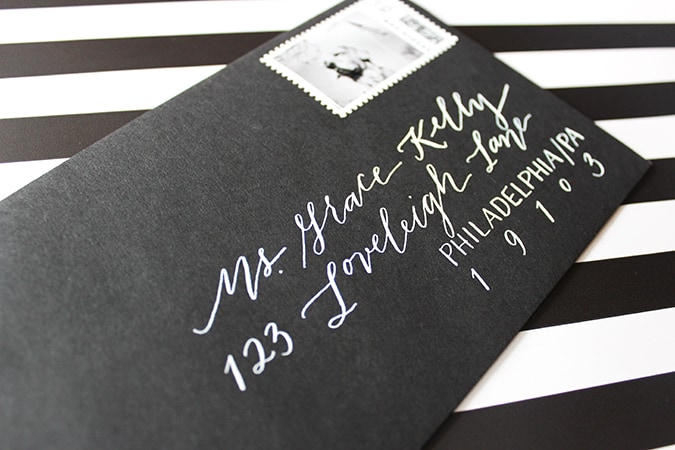 Ms. Grace Kelly
123 Loveleigh Lane
PHILADELPHIA/PA
19103